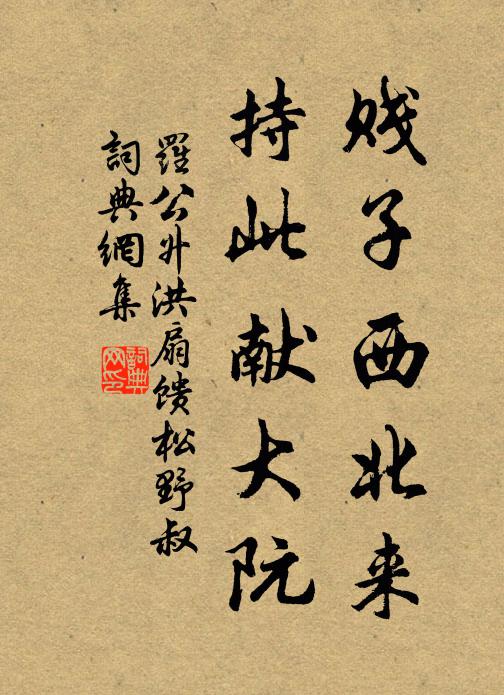 贱子西北来
持此献大阮
羅公升洪扇馈松野叔
詞典網集
詞典网印